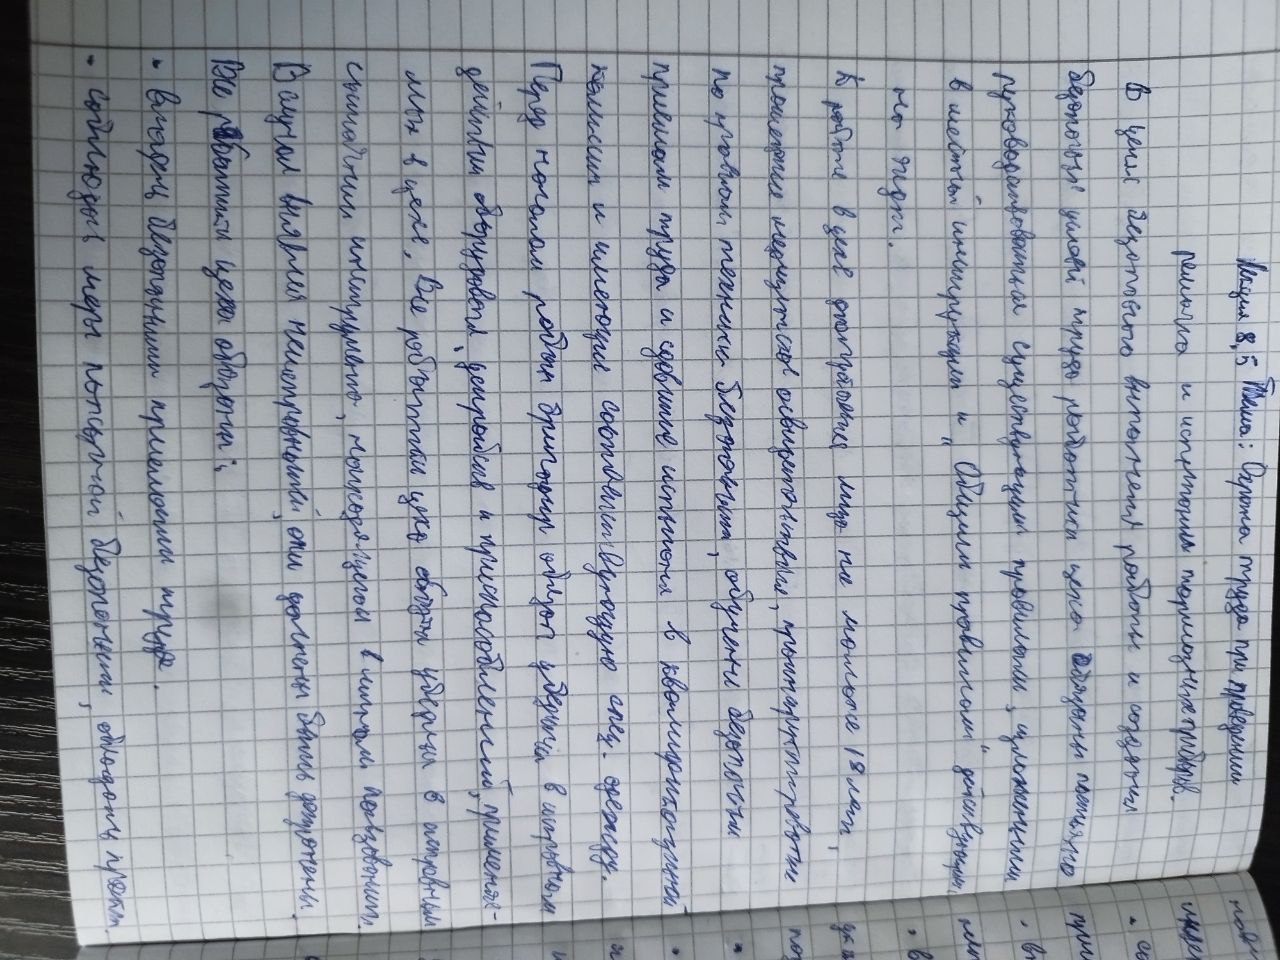 Лекция 8,5 Тема: Охрана труда при проведении
ремонта и испытании тормозных приборов.
В целях безопасного выполнения работы и создания
безопасных условий труда работники цеха обязаны постоянно
руководствоваться существующими правилами, изложенными
в местной инструкции и "Общими правилами" действующими
на ж/д.
К работе в цехе допускаются лица не моложе 18 лет,
прошедшие медицинское освидетельствование, проинструктированы
по правилам техники безопасности, обучены безопасным
приемам труда и сдавшие испытания в квалификационной
комиссии и имеющие соответствующую спец. одежду.
Перед началом работы бригадир обязан убедится в исправном
действии оборудования, устройств и приспособлений, применяе-
мых в цехе. Все работники цеха обязаны убедится в исправном
состоянии инструмента, находящегося в личном пользовании.
В случае выявления неисправностей, они должны быть устранены.
Все работники цеха обязаны:
• владеть безопасными приемами труда.
• соблюдать меры пожарной безопасности, обладать практ.